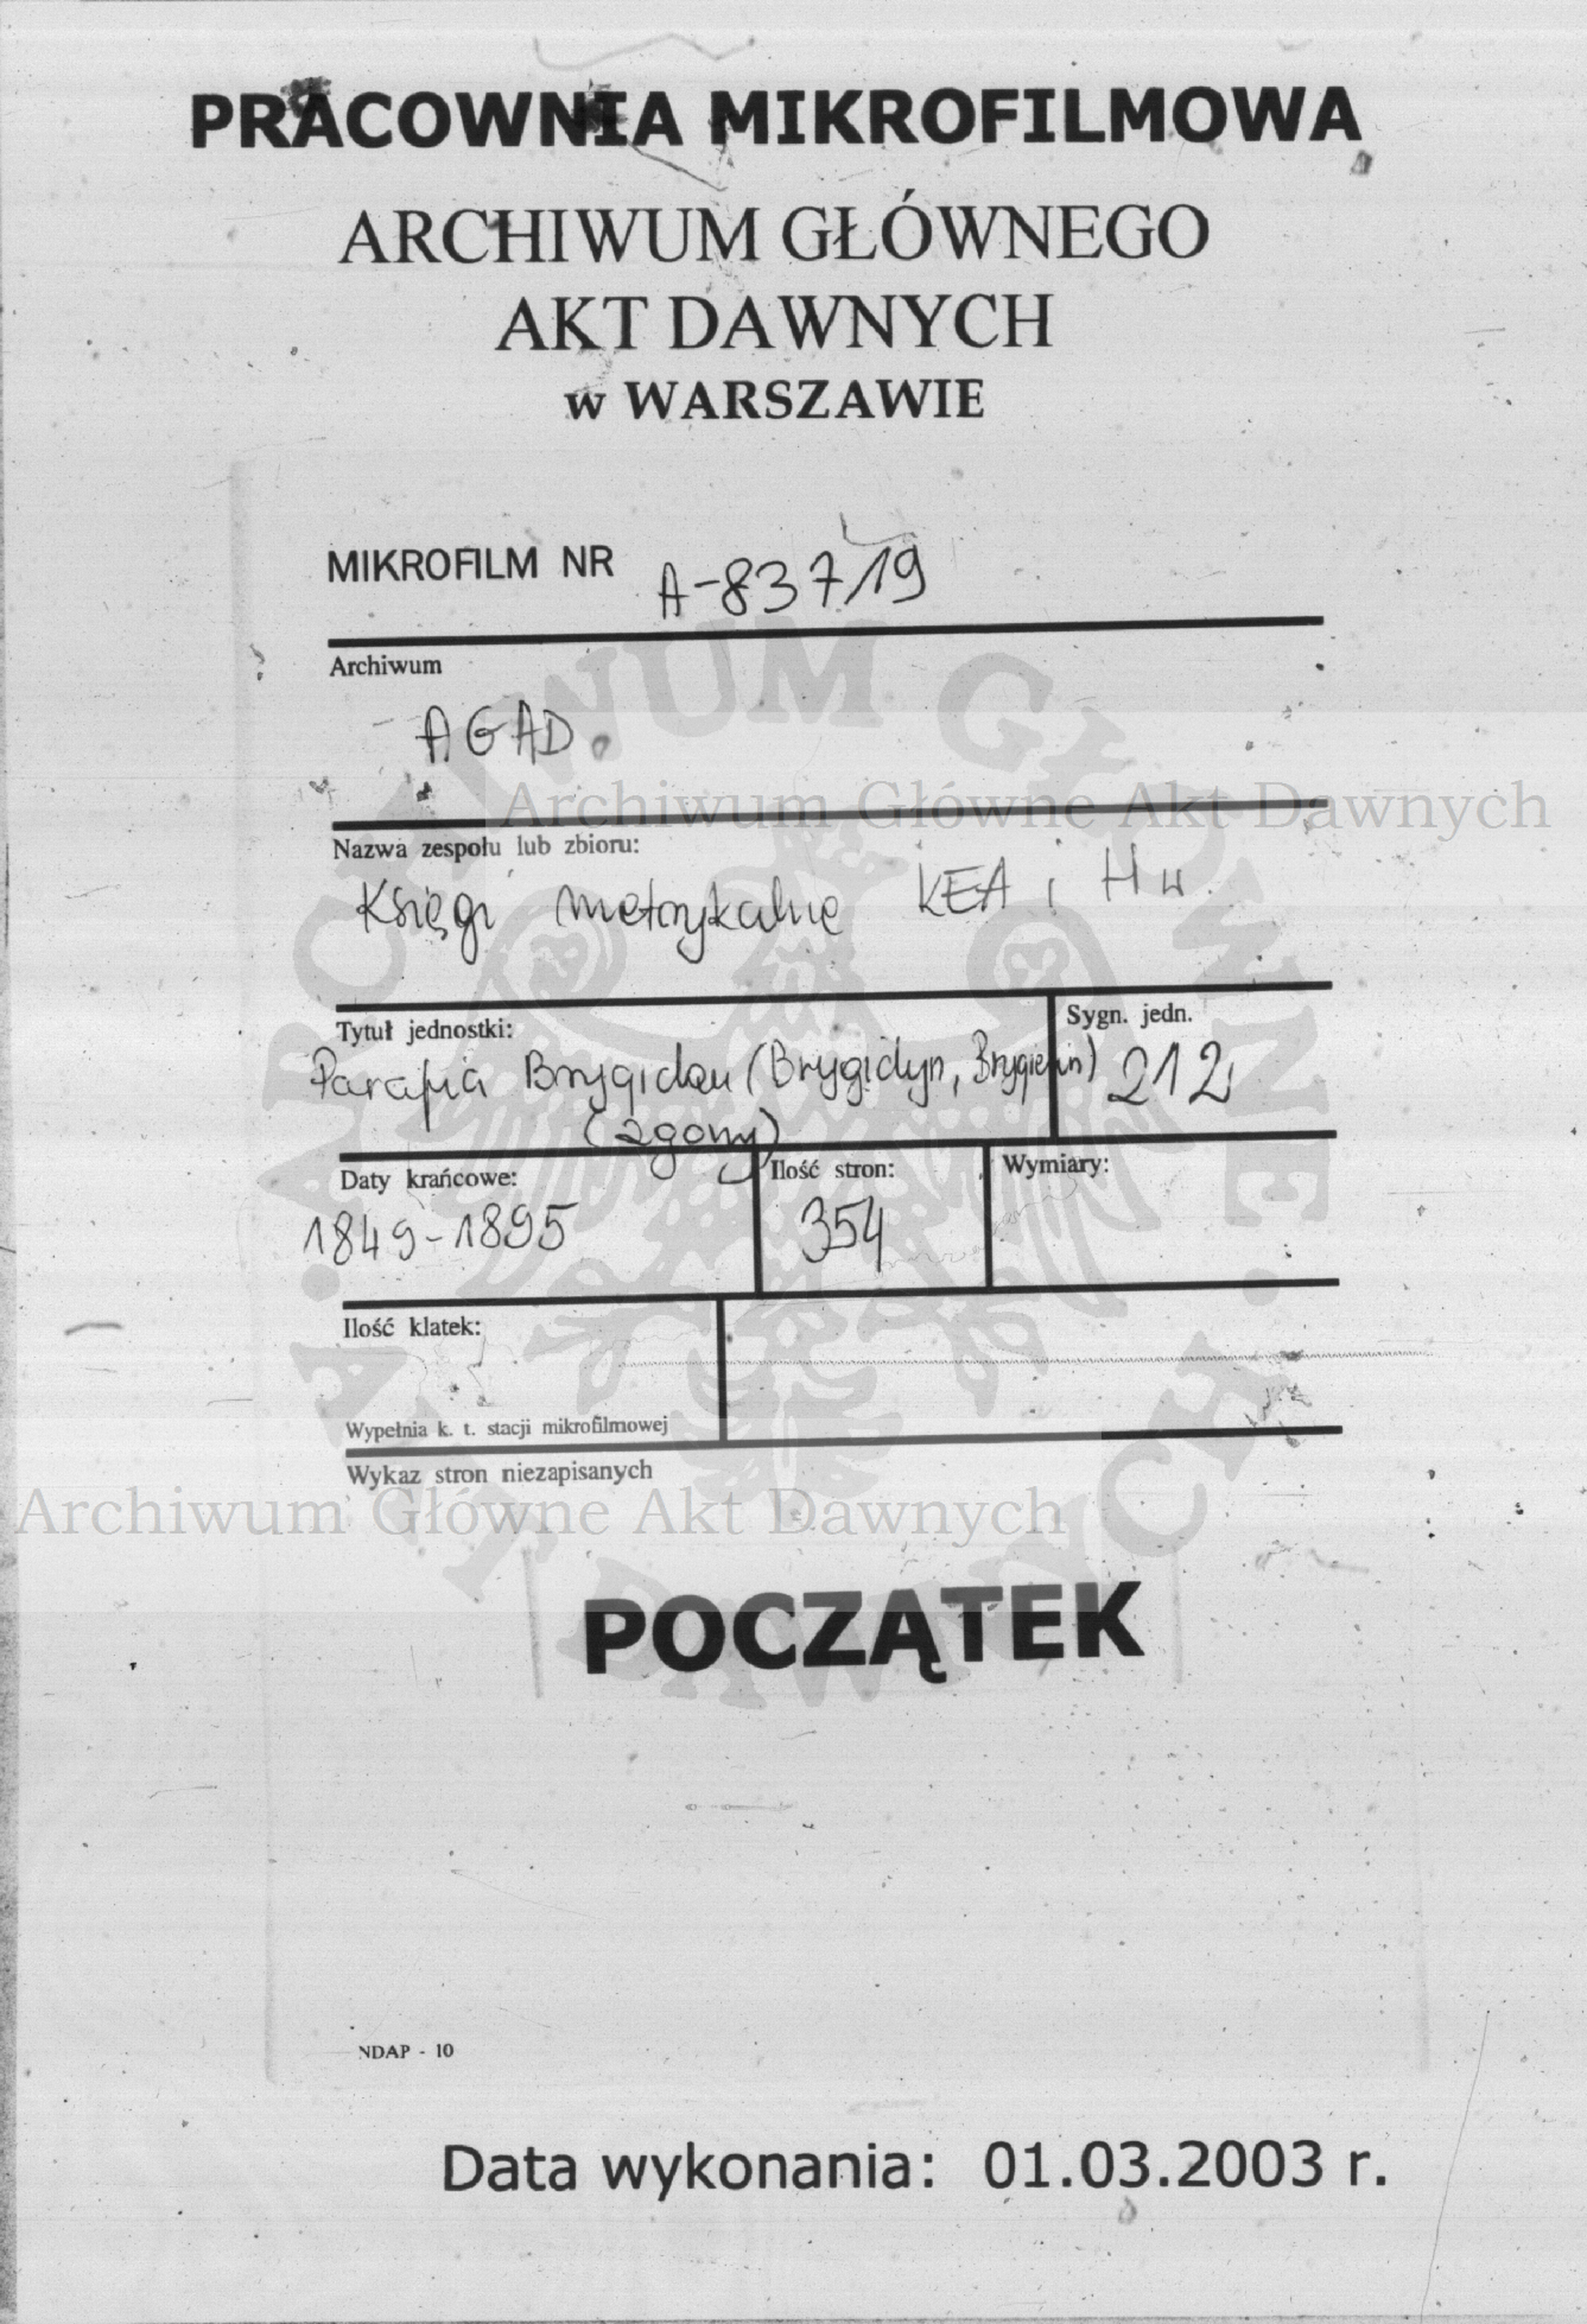 PRACOWNIA MIKROFILMOWA
ARCHIWUM GŁÓWNEGO
AKT DAWNYCH
w WARSZAWIE
MIKROFILM NR A-83719
Archiwum
AGAD
Archiwum Główne Akt Dawnych
Nazwa zespołu lub zbioru:
Księgi metrykalne KEA i H w.
Tytuł jednostki:
Sygn. jedn.
Parafia Brygidau (Brygidyn, Brygidin) 212
(zgony)
Daty krańcowe:
Ilość stron:
Wymiary:
1849-1895
354
Ilość klatek:
Wypełnia k. t. stacji mikrofilmowej
Wykaz stron niezapisanych
Archiwum Główne Akt Dawnych
POCZĄTEK
ARCHIWUM GŁÓWNE AKT DAWNYCH
NDAP - 10
Data wykonania: 01.03.2003 r.